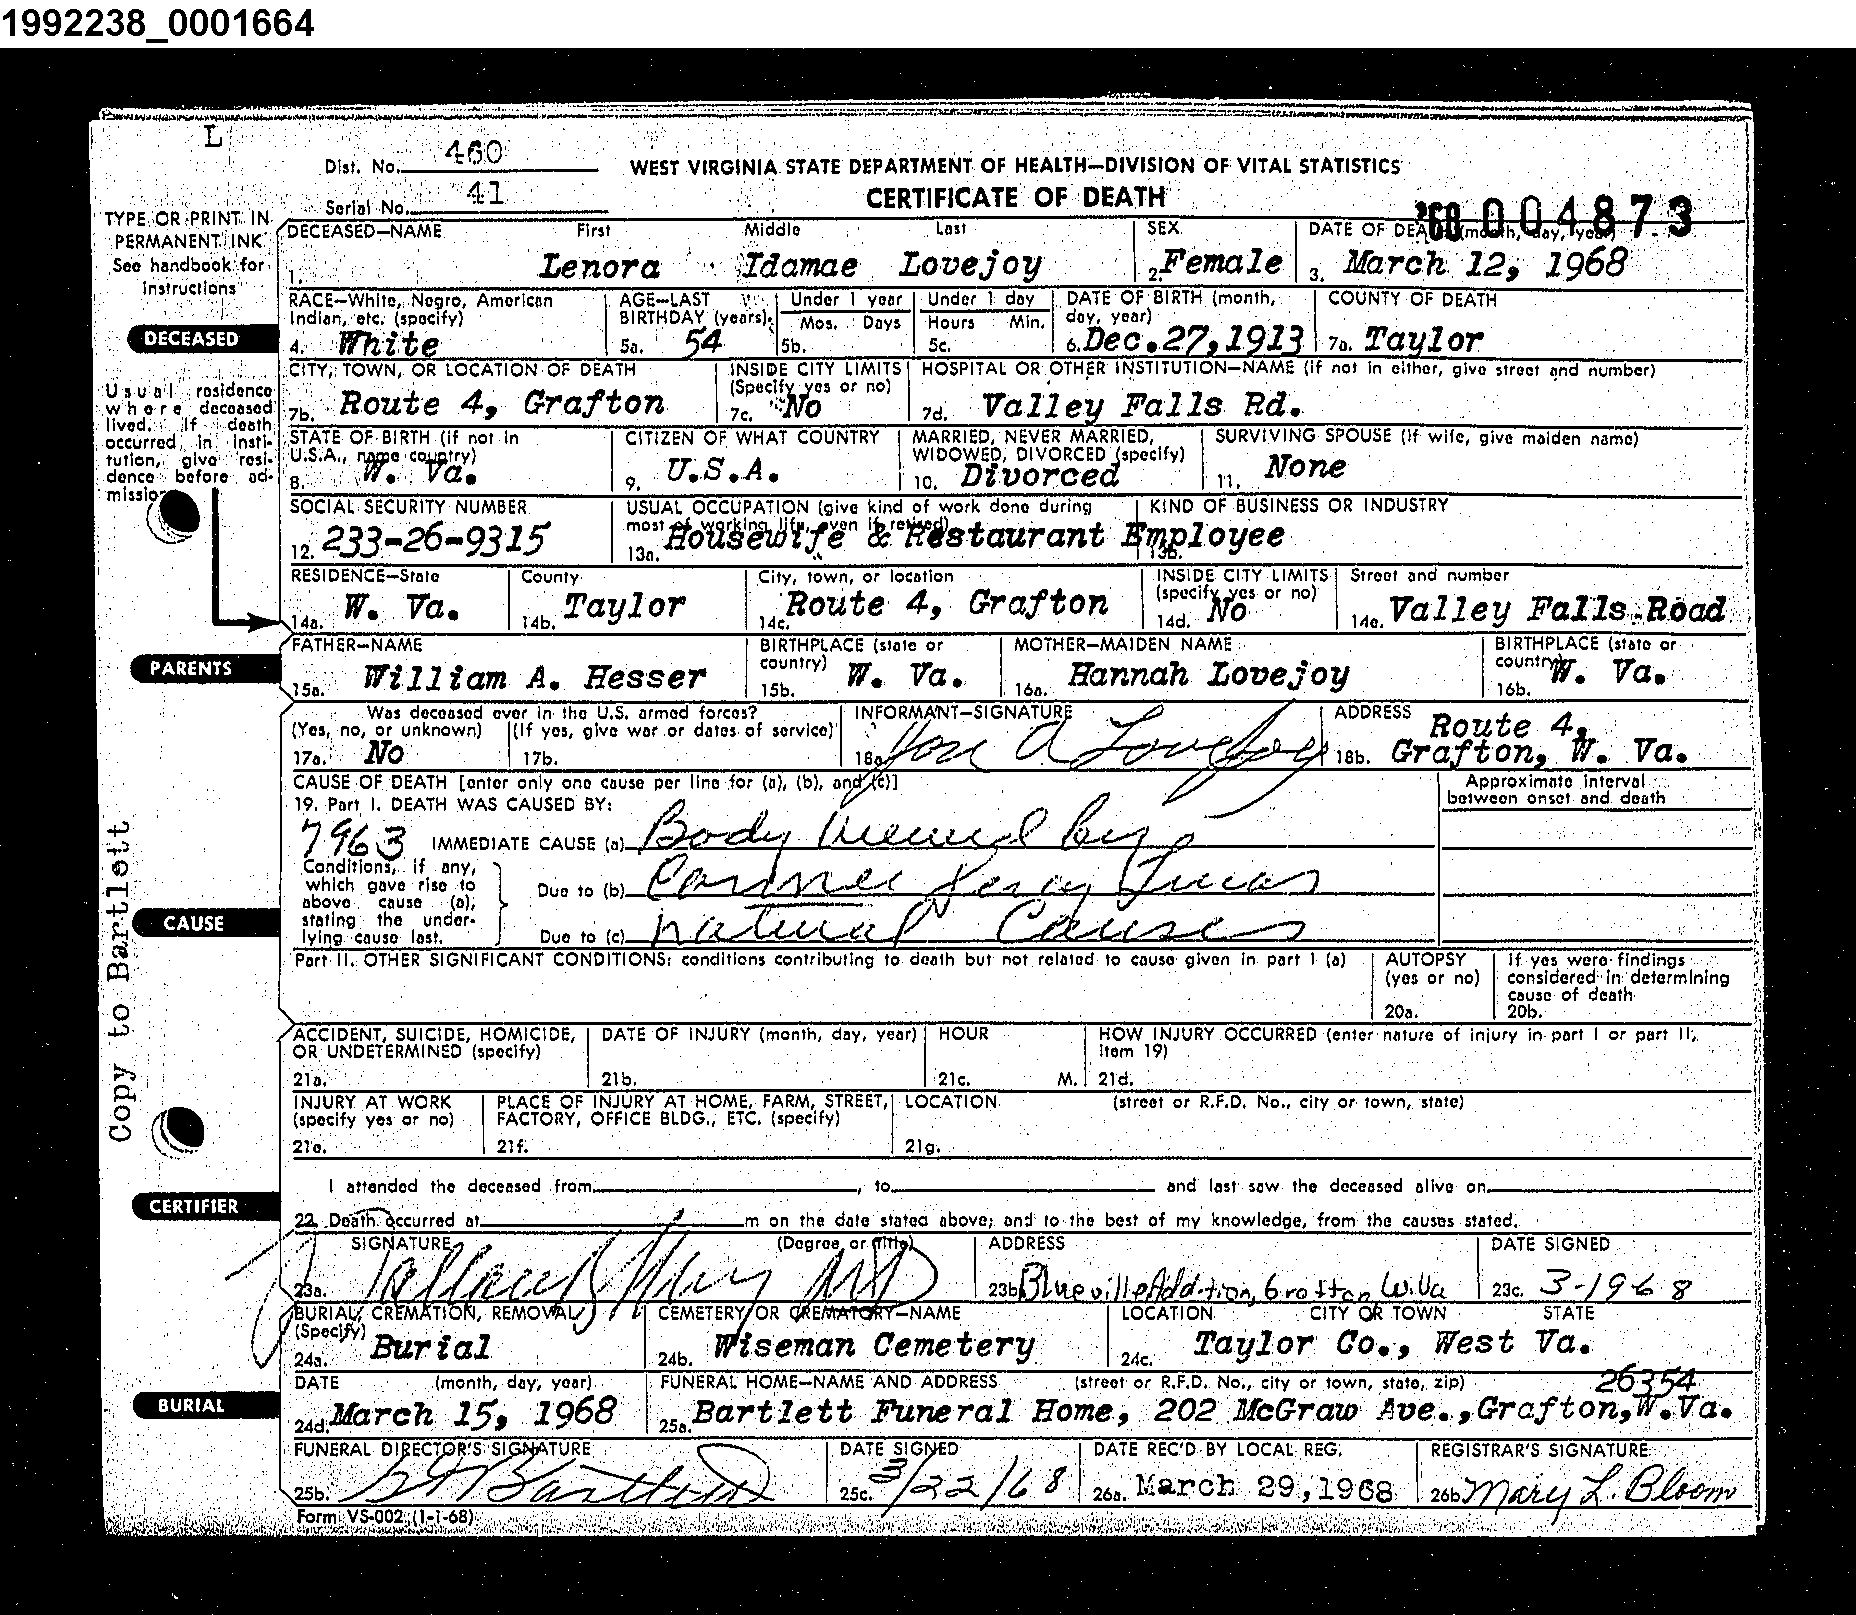 1992238_0001664
L
Dist. No. 460
WEST VIRGINIA STATE DEPARTMENT OF HEALTH—DIVISION OF VITAL STATISTICS
Serial No. 41
CERTIFICATE OF DEATH
'68 004873
TYPE OR PRINT IN
PERMANENT INK
See handbook for
instructions
DECEASED—NAME First Middle Last SEX DATE OF DEATH (month, day, year)
1. Lenora Idamae Lovejoy 2. Female 3. March 12, 1968
RACE—White, Negro, American
Indian, etc. (specify)
4. White
AGE—LAST
BIRTHDAY (years)
5a. 54
Under 1 year
Mos. Days
5b.
Under 1 day
Hours Min.
5c.
DATE OF BIRTH (month,
day, year)
6. Dec.27,1913
COUNTY OF DEATH
7a. Taylor
DECEASED
Usual residence
where deceased
lived. If death
occurred in insti-
tution, give resi-
dence before ad-
mission
CITY, TOWN, OR LOCATION OF DEATH
7b. Route 4, Grafton
INSIDE CITY LIMITS
(Specify yes or no)
7c. No
HOSPITAL OR OTHER INSTITUTION—NAME (if not in either, give street and number)
7d. Valley Falls Rd.
STATE OF BIRTH (if not in
U.S.A., name country)
8. W. Va.
CITIZEN OF WHAT COUNTRY
9. U.S.A.
MARRIED, NEVER MARRIED,
WIDOWED, DIVORCED (specify)
10. Divorced
SURVIVING SPOUSE (If wife, give maiden name)
11. None
SOCIAL SECURITY NUMBER
12. 233-26-9315
USUAL OCCUPATION (give kind of work done during
most of working life, even if retired)
13a. Housewife & Restaurant Employee
KIND OF BUSINESS OR INDUSTRY
13b.
RESIDENCE—State
14a. W. Va.
County
14b. Taylor
City, town, or location
14c. Route 4, Grafton
INSIDE CITY LIMITS
(specify yes or no)
14d. No
Street and number
14e. Valley Falls Road
PARENTS
FATHER—NAME
15a. William A. Hesser
BIRTHPLACE (state or
country)
15b. W. Va.
MOTHER—MAIDEN NAME
16a. Hannah Lovejoy
BIRTHPLACE (state or
country)
16b. W. Va.
Was deceased ever in the U.S. armed forces?
(Yes, no, or unknown) (If yes, give war or dates of service)
17a. No 17b.
INFORMANT—SIGNATURE
18a. A Lovejoy
ADDRESS
18b. Route 4,
Grafton, W. Va.
CAUSE OF DEATH [enter only one cause per line for (a), (b), and (c)]
Approximate interval
between onset and death
19. Part I. DEATH WAS CAUSED BY:
7963
IMMEDIATE CAUSE (a) Body viewed by
Conditions, if any,
which gave rise to
above cause (a),
stating the under-
lying cause last.
Due to (b) Coroner Leroy Lucas
Due to (c) natural Causes
CAUSE
Copy to Bartlett
Part II. OTHER SIGNIFICANT CONDITIONS: conditions contributing to death but not related to cause given in part I (a)
AUTOPSY
(yes or no)
20a.
If yes were findings
considered in determining
cause of death
20b.
ACCIDENT, SUICIDE, HOMICIDE,
OR UNDETERMINED (specify)
21a.
DATE OF INJURY (month, day, year)
21b.
HOUR
21c. M.
HOW INJURY OCCURRED (enter nature of injury in part I or part II,
Item 19)
21d.
INJURY AT WORK
(specify yes or no)
21e.
PLACE OF INJURY AT HOME, FARM, STREET,
FACTORY, OFFICE BLDG., ETC. (specify)
21f.
LOCATION (street or R.F.D. No., city or town, state)
21g.
CERTIFIER
I attended the deceased from , to and last saw the deceased alive on
22. Death occurred at m on the date stated above; and to the best of my knowledge, from the causes stated.
SIGNATURE (Degree or title)
23a. MD
ADDRESS
23b. Blueville Addition, Grafton W.Va
DATE SIGNED
23c. 3-19-68
BURIAL, CREMATION, REMOVAL
(Specify)
24a. Burial
CEMETERY OR CREMATORY—NAME
24b. Wiseman Cemetery
LOCATION CITY OR TOWN STATE
24c. Taylor Co., West Va.
BURIAL
DATE (month, day, year)
24d. March 15, 1968
FUNERAL HOME—NAME AND ADDRESS (street or R.F.D. No., city or town, state, zip)
26354
25a. Bartlett Funeral Home, 202 McGraw Ave.,Grafton,W.Va.
FUNERAL DIRECTOR'S SIGNATURE
25b. Bartlett
DATE SIGNED
25c. 3/22/68
DATE REC'D BY LOCAL REG.
26a. March 29,1968
REGISTRAR'S SIGNATURE
26b. Mary L. Bloom
Form VS-002 (1-1-68)